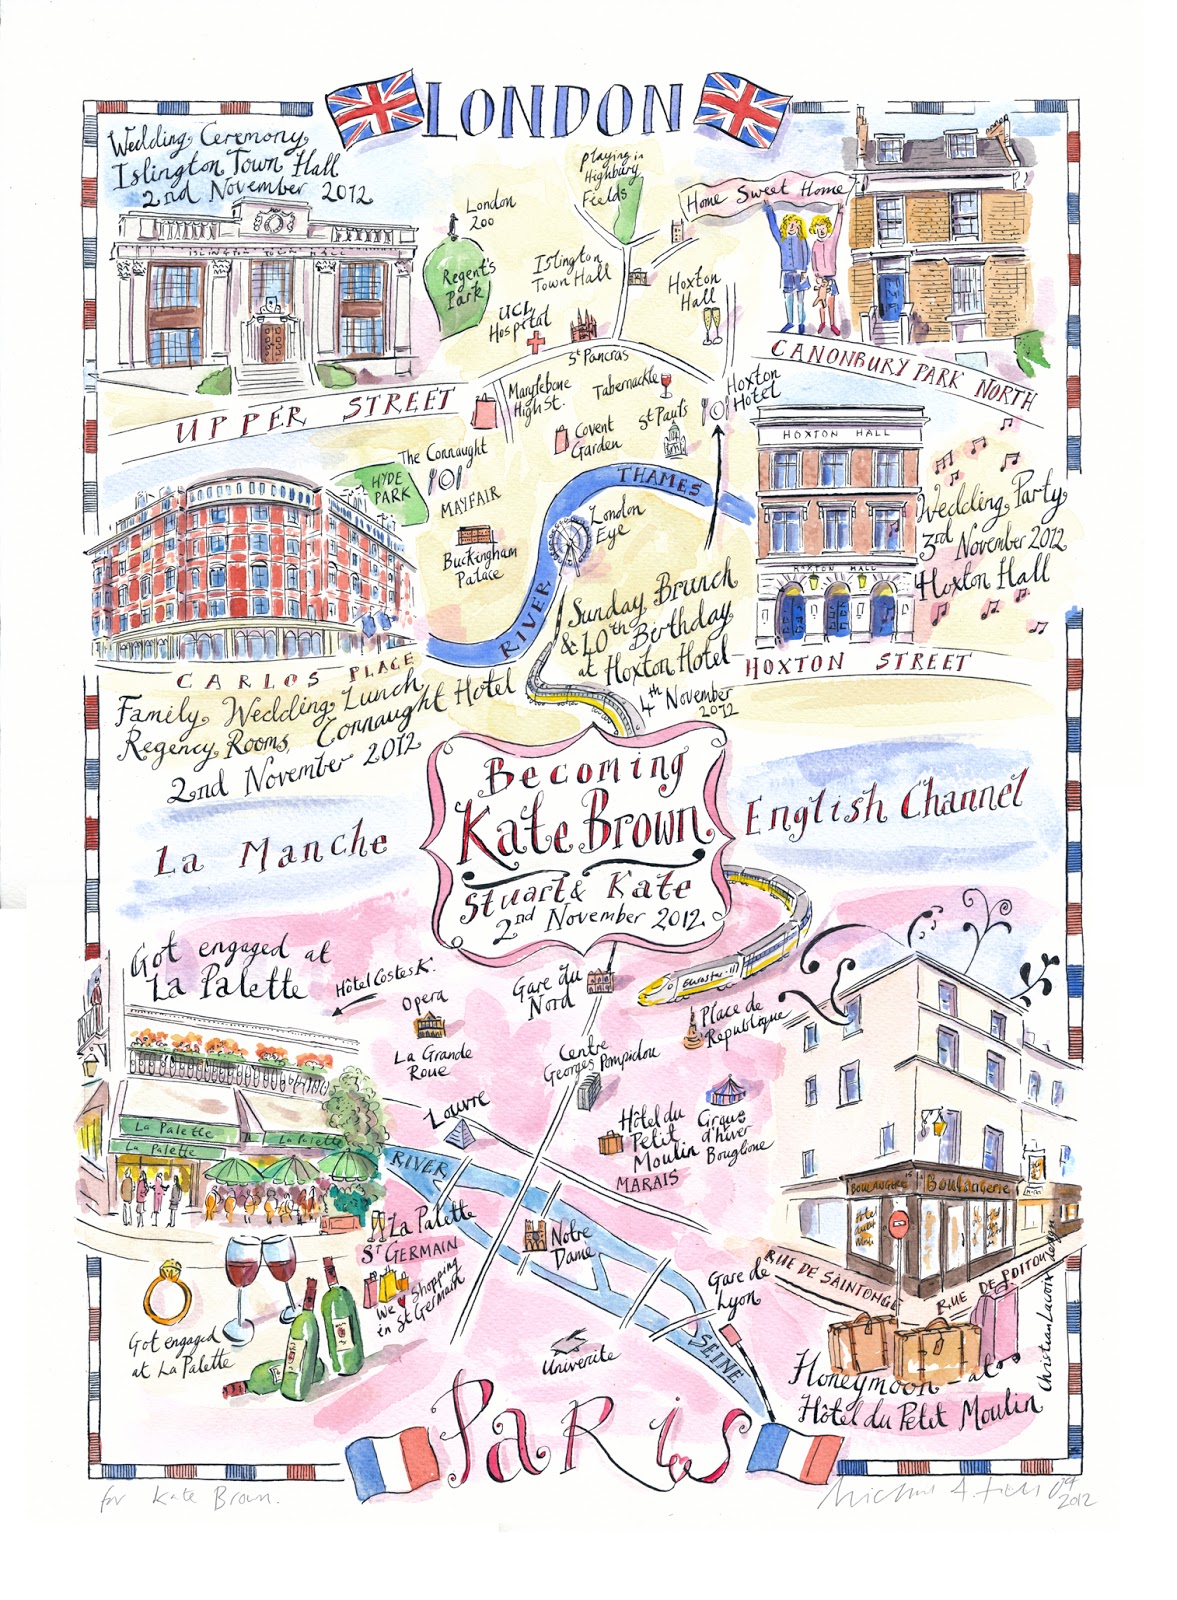 LONDON
Wedding Ceremony
Islington Town Hall
2nd November 2012
ISLINGTON TOWN HALL
UPPER STREET
London
Zoo
Regent's
Park
playing in
Highbury
Fields
Islington
Town Hall
UCL
Hospital
St Pancras
Hoxton
Hall
Home Sweet Home
CANONBURY PARK NORTH
Marylebone
High St.
Tabernackle
Hoxton
Hotel
Covent
Garden
St Paul's
The Connaught
HYDE
PARK
MAYFAIR
Buckingham
Palace
RIVER THAMES
London
Eye
HOXTON HALL
HOXTON HALL
Wedding Party
3rd November 2012
Hoxton Hall
HOXTON STREET
Sunday Brunch
& 40th Birthday
at Hoxton Hotel
4th November
2012
CARLOS PLACE
Family Wedding Lunch
Regency Rooms, Connaught Hotel
2nd November 2012
Becoming
Kate Brown
Stuart & Kate
2nd November 2012
La Manche
English Channel
Eurostar
Got engaged at
La Palette
Hôtel Costes K.
Opera
La Grande
Roue
Gare du
Nord
Place de
Republique
Centre
Georges Pompidou
Louvre
Hôtel du
Petit
Moulin
MARAIS
Cirque
d'hiver
Bouglione
La Palette
La Palette
La Palette
RIVER SEINE
La Palette
ST GERMAIN
We ♥ Shopping
in St Germain
Notre
Dame
Gare de
Lyon
Univerite
Got engaged
at La Palette
BOULANGERIE
BOULANGERIE
RUE DE SAINTONGE
RUE DE POITOU
Christian Lacroix design
Honeymoon at
Hôtel du Petit Moulin
PARIS
for Kate Brown.
2012